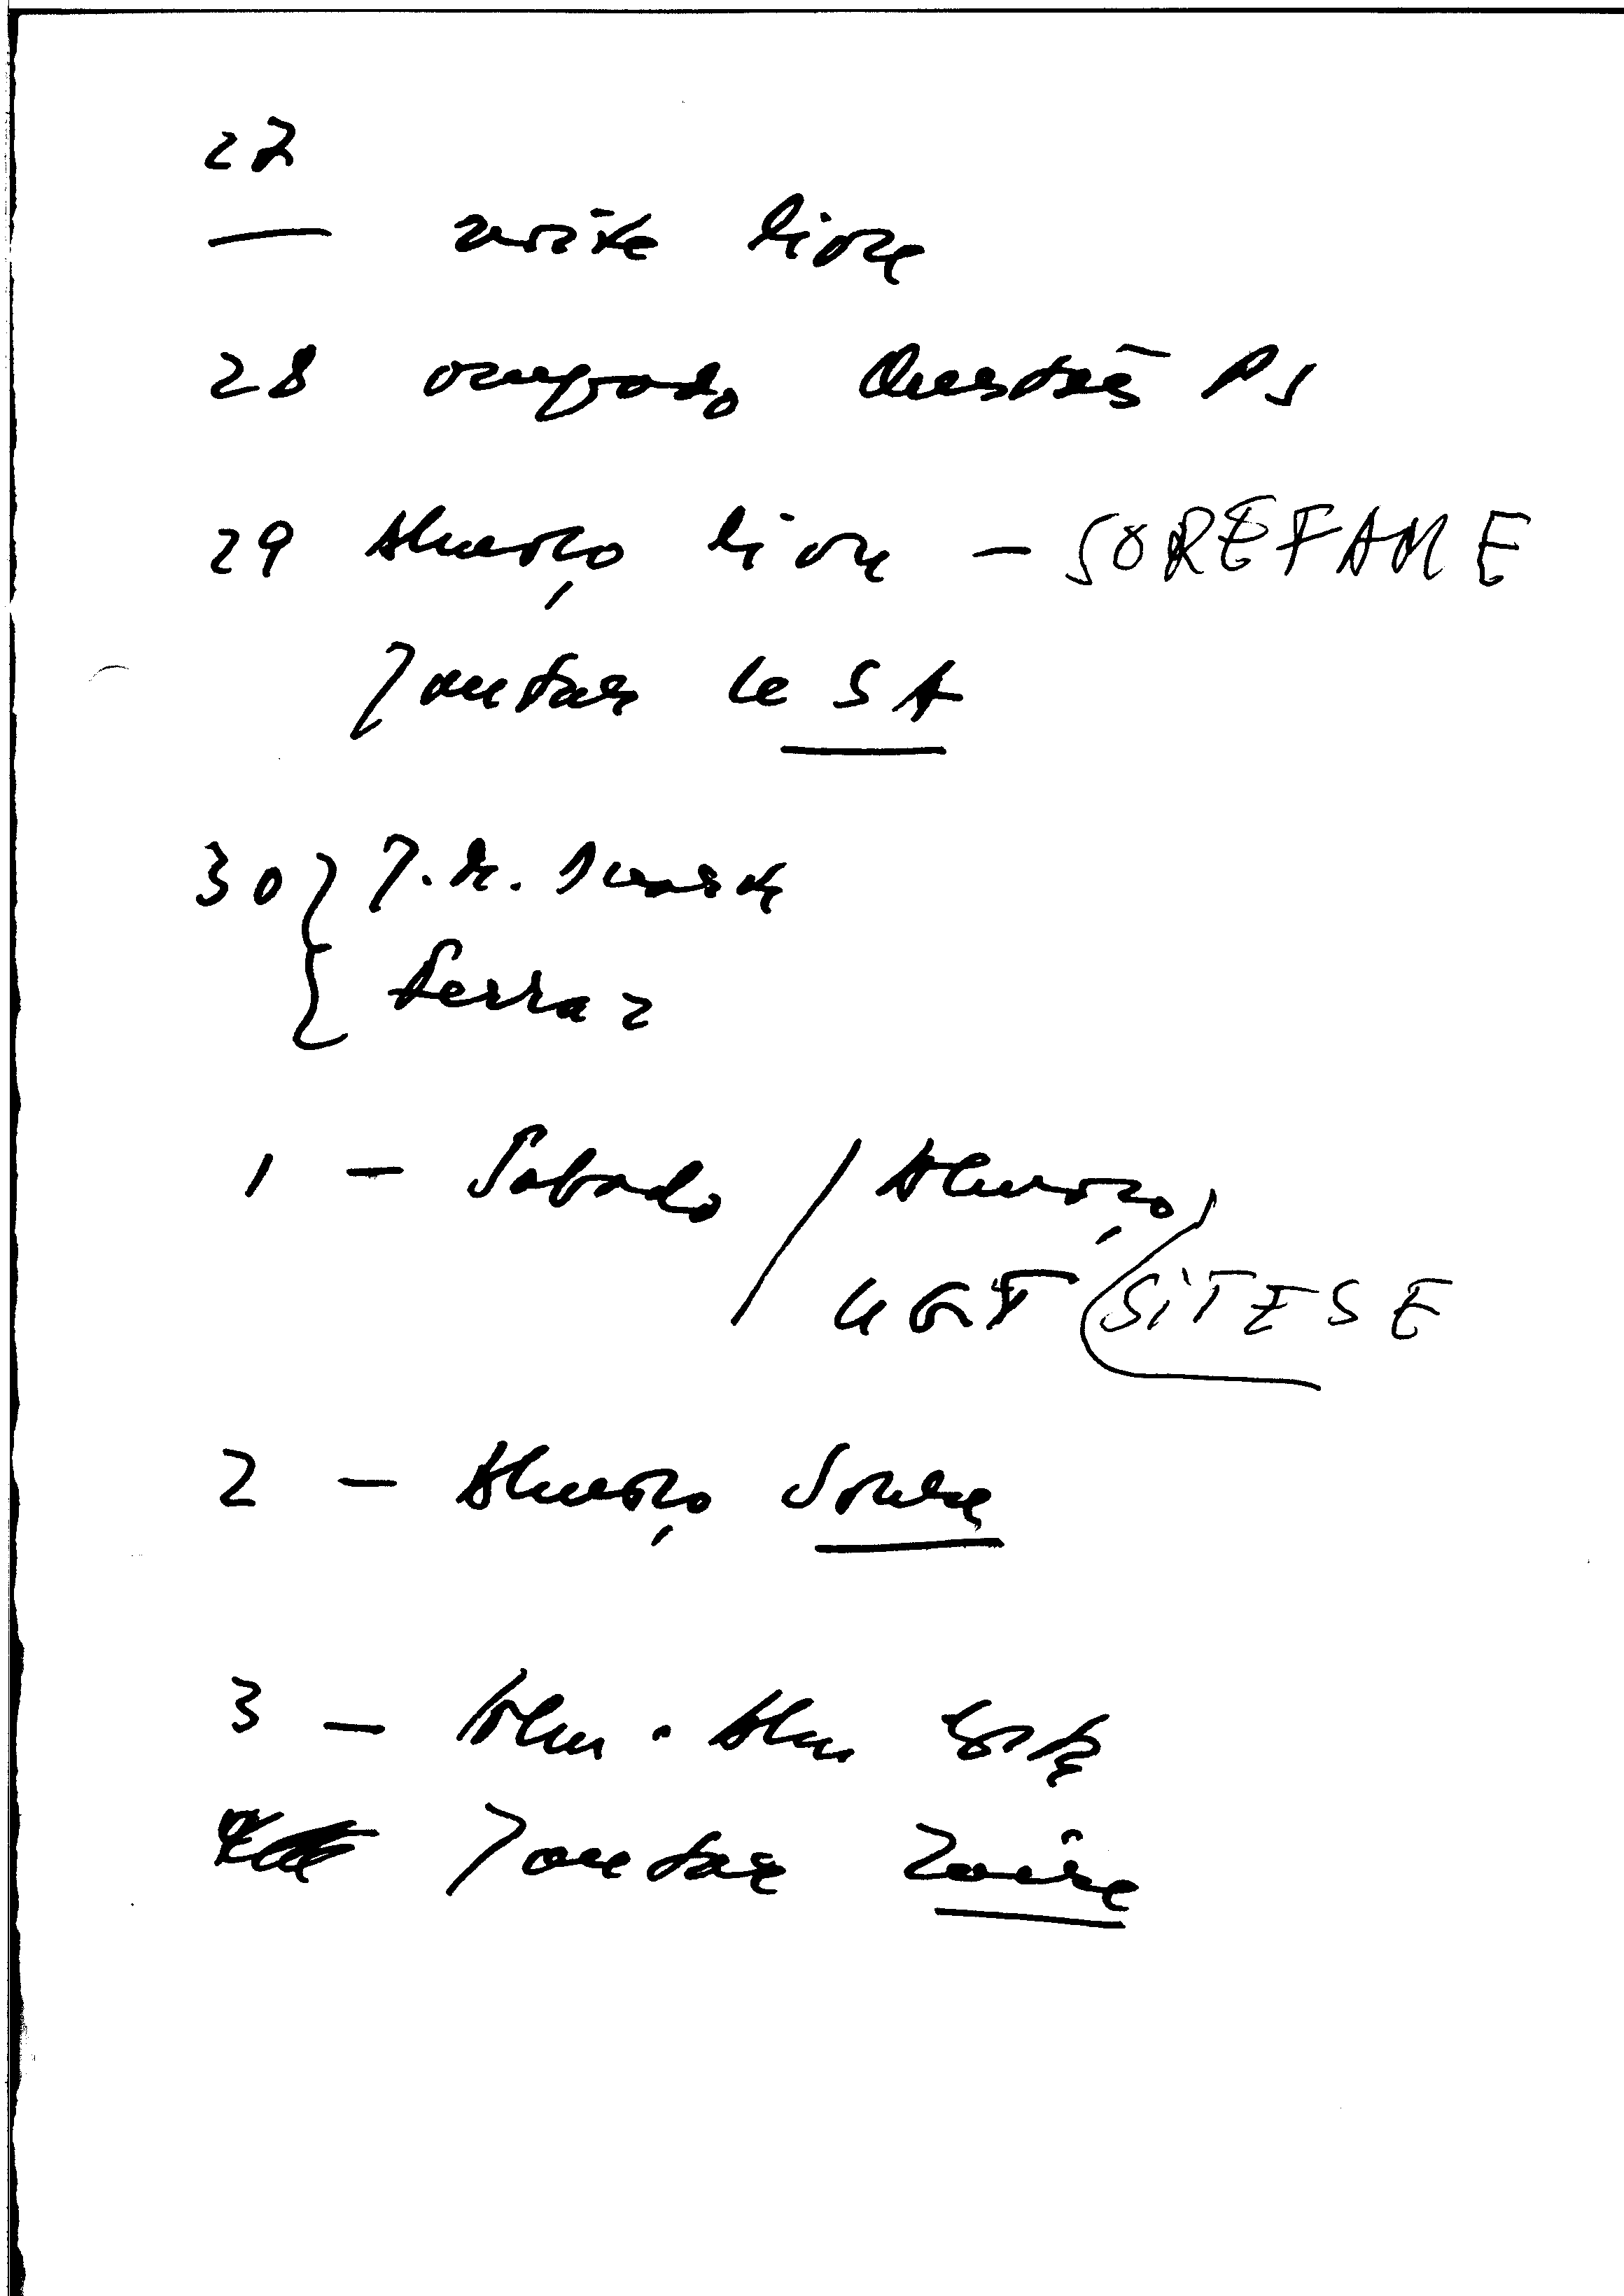 27
— noite livre
28 ocupado Questões PS
29 Almoço livre — SOREFAME
Jantar SA
30 J. M. Duarte
Ferraz
1 — Sabado / Almoço
UGT (SITESE
2 — Almoço Soures
3 — Alm. Alm
Jantar Zaire